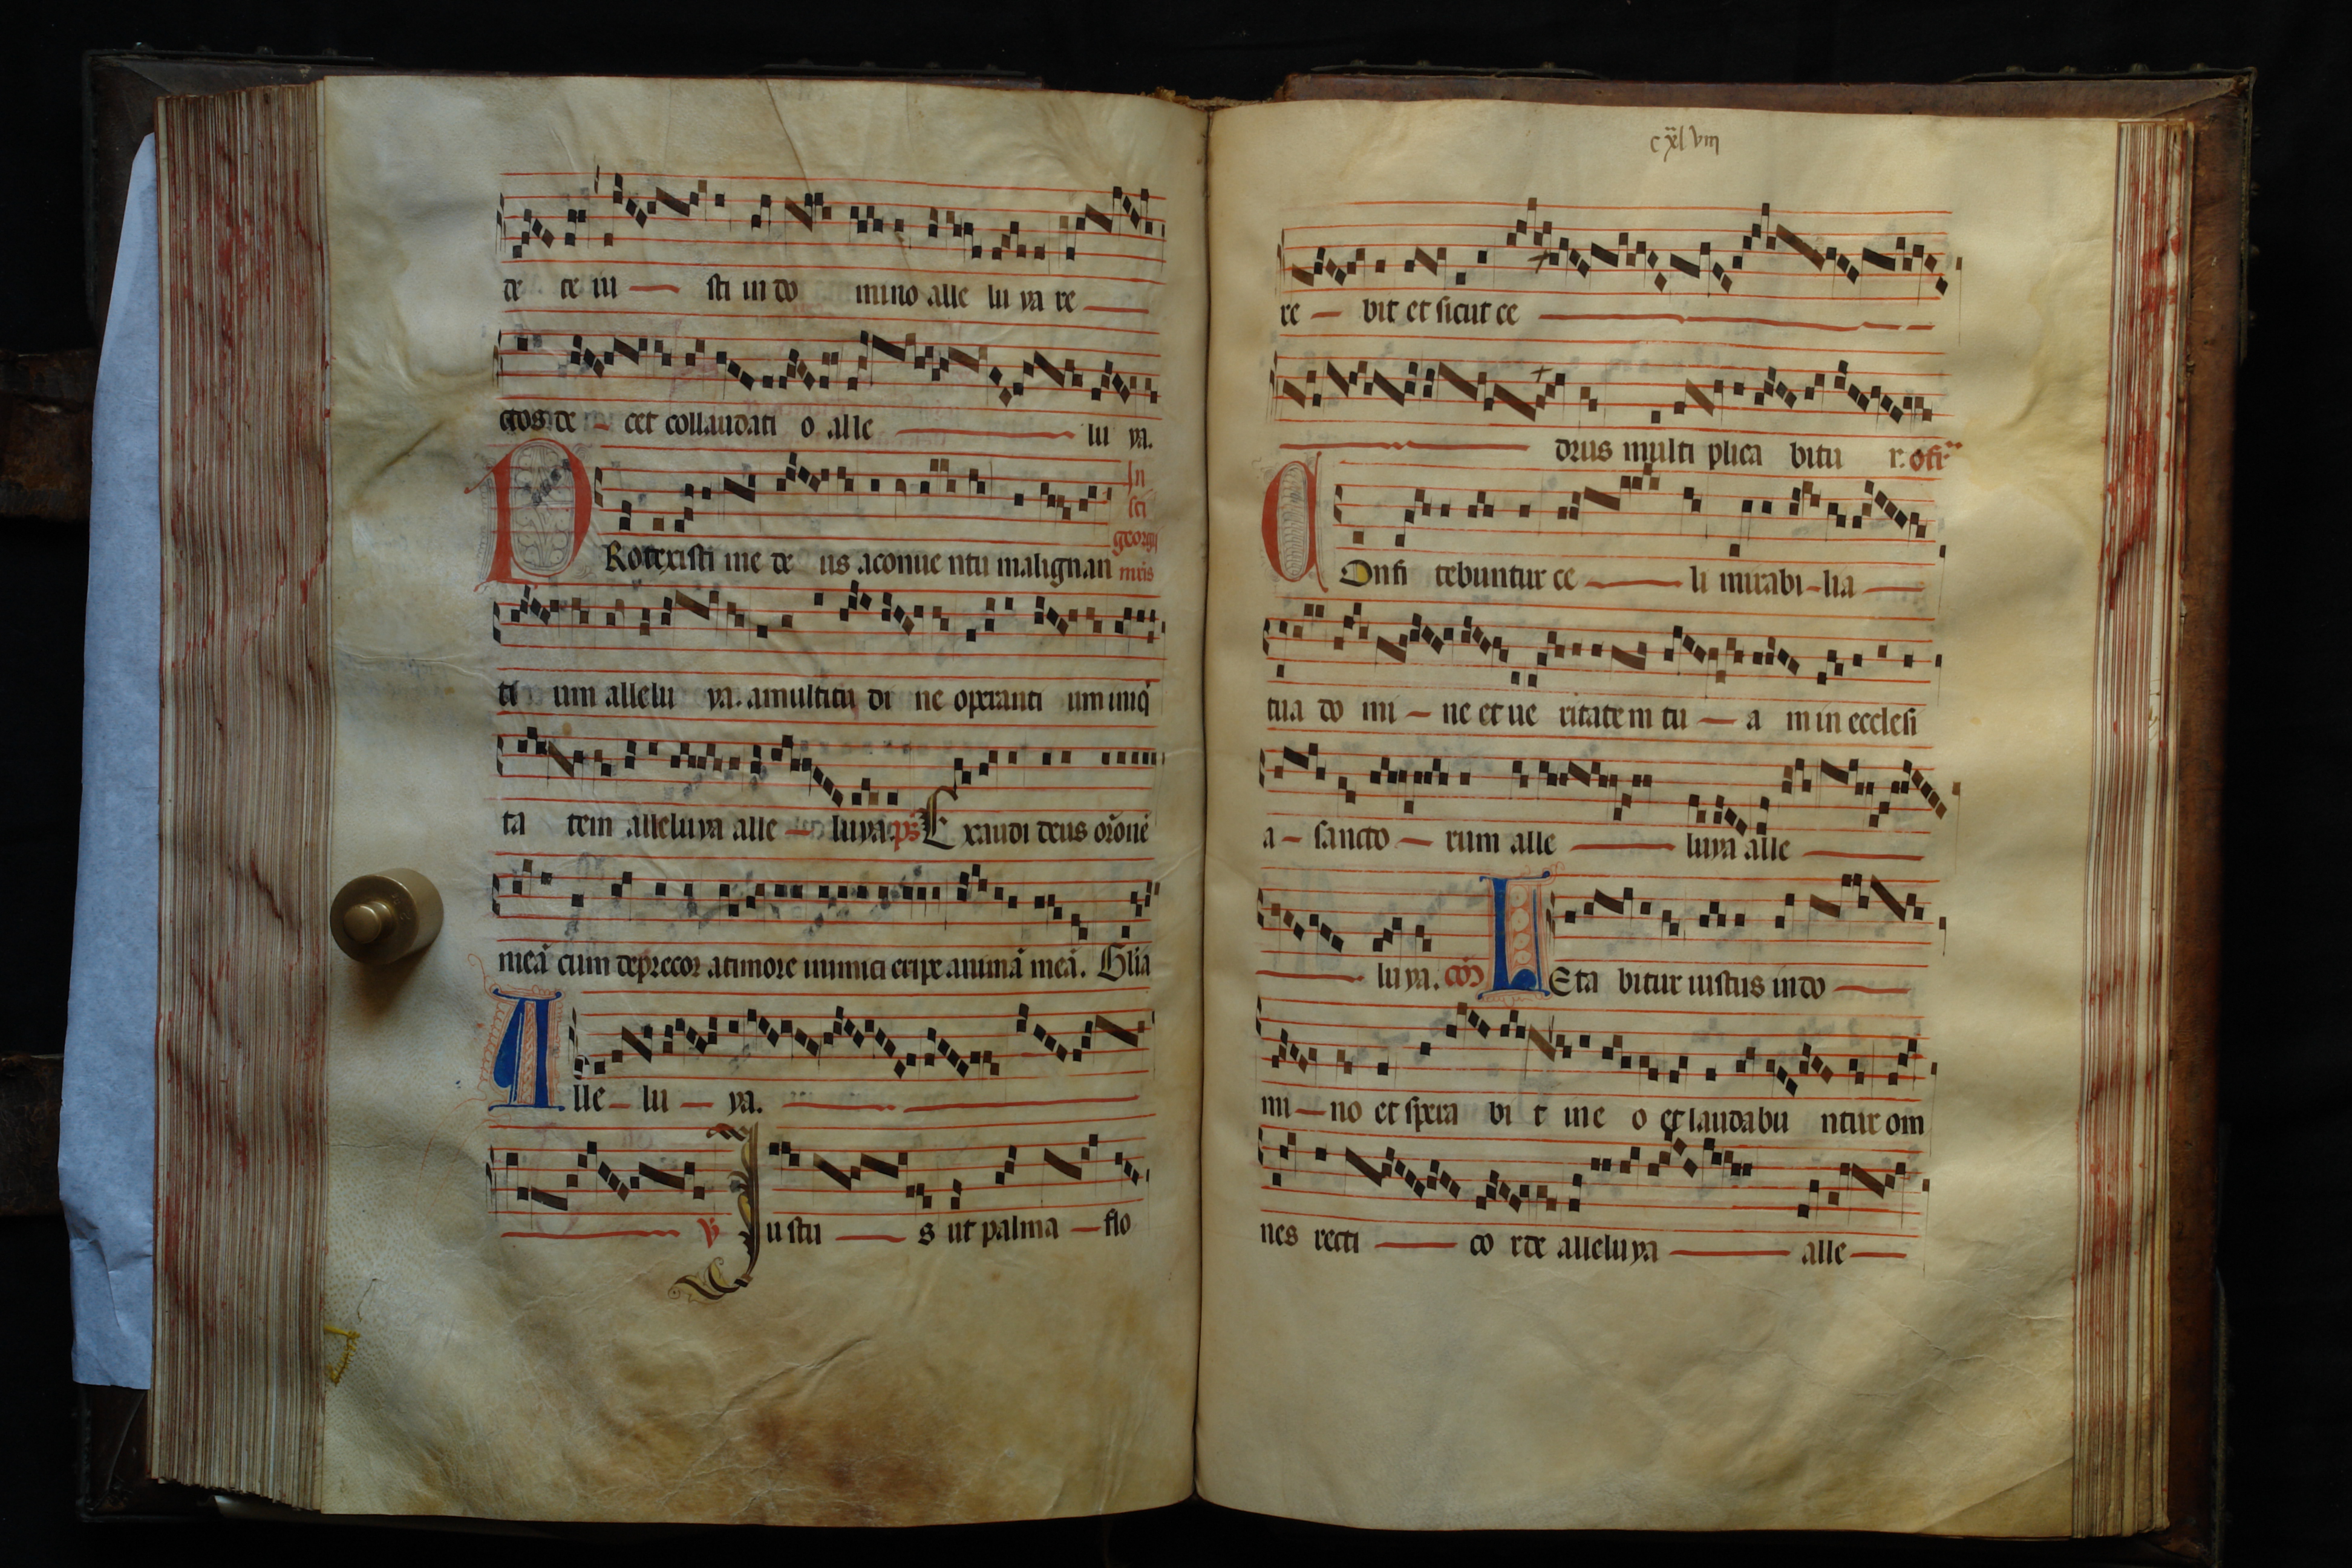 de te iu — sti in do mino alle lu ya re —
ctos de - cet collaudati o alle — lu ya.
In
sci
georgii
PRotexisti me de us aconue ntu malignan mris
ti um allelu ya. amultitu di ne operanti um iniq̇
ta tem alleluya alle — luya. ps̄ Exaudi deus orōnē
meā cum deprecor atimore inimici eripe animā meā. Glīa
Alle — lu — ya. —
— ℣ Justu — s ut palma — flo
cxlviii
re — bit et sicut ce —
— drus multi plica bitu r. ofr̄
COnfi tebuntur ce — li mirabi - lia —
tua do mi — ne et ue ritatem tu — a m in ecclesi
a - sancto — rum alle — luya alle —
— luya. com̄ LEta bitur iustus in do —
mi — no et spera bi t in e o et laudabu ntur om
nes recti — co rde alleluya — alle —